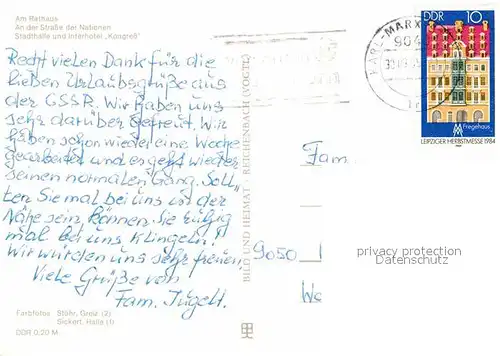 Am Rathaus
An der Straße der Nationen
Stadthalle und Interhotel „Kongreß"
Recht vielen Dank für die
lieben Urlaubsgrüße aus
der CSSR. Wir haben uns
sehr darüber gefreut. Wir
haben schon wieder eine Woche
gearbeitet und es geht wieder
seinen normalen Gang. Soll„
ten Sie mal bei uns in der
Nähe sein, können Sie ruhig
mal bei uns klingeln!
Wir würden uns sehr freuen.
Viele Grüße von
Fam. Jügelt.
Farbfotos Stöhr, Greiz (2)
Sickert, Halle (1)
DDR 0,20 M
BILD UND HEIMAT · REICHENBACH (VOGTL)
KARL-MARX
904
DDR 10
Fregehaus
LEIPZIGER HERBSTMESSE 1984
Fam.
9050
privacy protection
Datenschutz